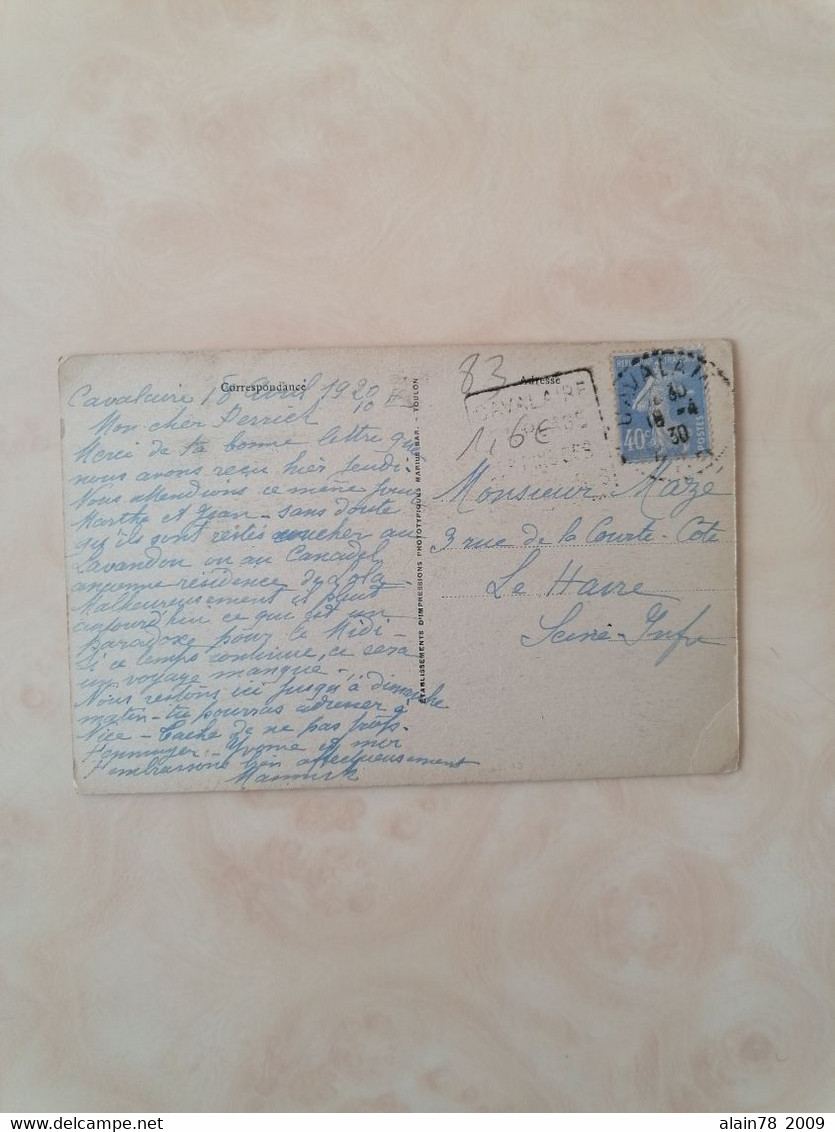 Correspondance
Cavalaire 18 Avril 1930
Mon cher Perrich
Merci de ta bonne lettre que
nous avons reçu hier jeudi.
Nous attendions ce même jour
Marthe et Jean - sans doute
qu'ils sont restés coucher au
Lavandou ou au Canadel
ancienne résidence de
Malheureusement il pleut
aujourd'hui ce qui est un
paradoxe pour le Midi -
Si ce temps continue, ce sera
un voyage manqué -
Nous restons ici jusqu'à dimanche
matin - tu pourras adresser à
Nice - Tache de ne pas trop
- Yvonne et moi
t'embrassons bien affectueusement
ETABLISSEMENTS D'IMPRESSIONS PHOTOTYPIQUES MARIUS BAR. - TOULON
Adresse
83
1,6€
CAVALAIRE
CAVALAIRE
18 -4
30
40c
POSTES
Monsieur Maze
3 rue de la Courte-Côte
Le Havre
Seine-Infre
alain78 2009